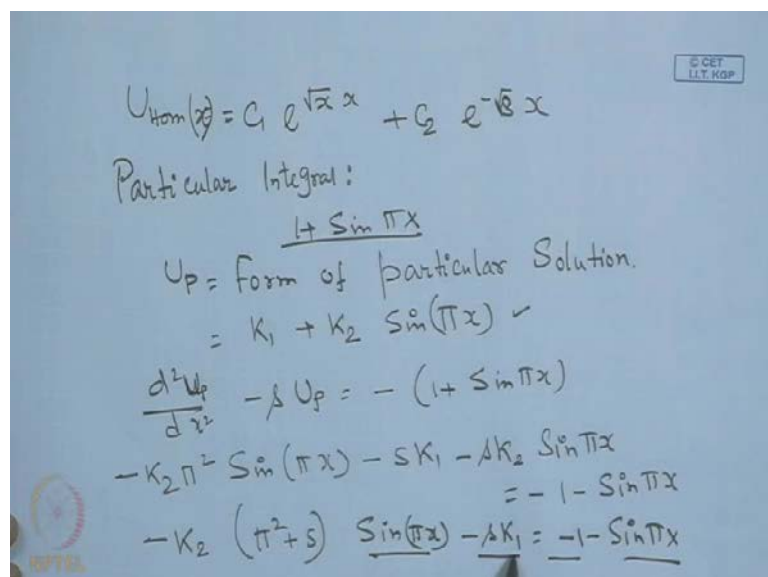 © CET
I.I.T. KGP
U_Hom(x) = C₁ e^{√x x} + C₂ e^{-√s x}
Particular Integral:
1+ Sin πx
U_P = Form of particular Solution.
= K₁ + K₂ Sin(πx) ✓
d²U_P/dx² - s U_P = - (1+ Sin πx)
-K₂π² Sin(πx) - sK₁ - sK₂ Sin πx
= -1 - Sin πx
-K₂ (π²+s) Sin(πx) - sK₁ = -1 - Sin πx
NPTEL